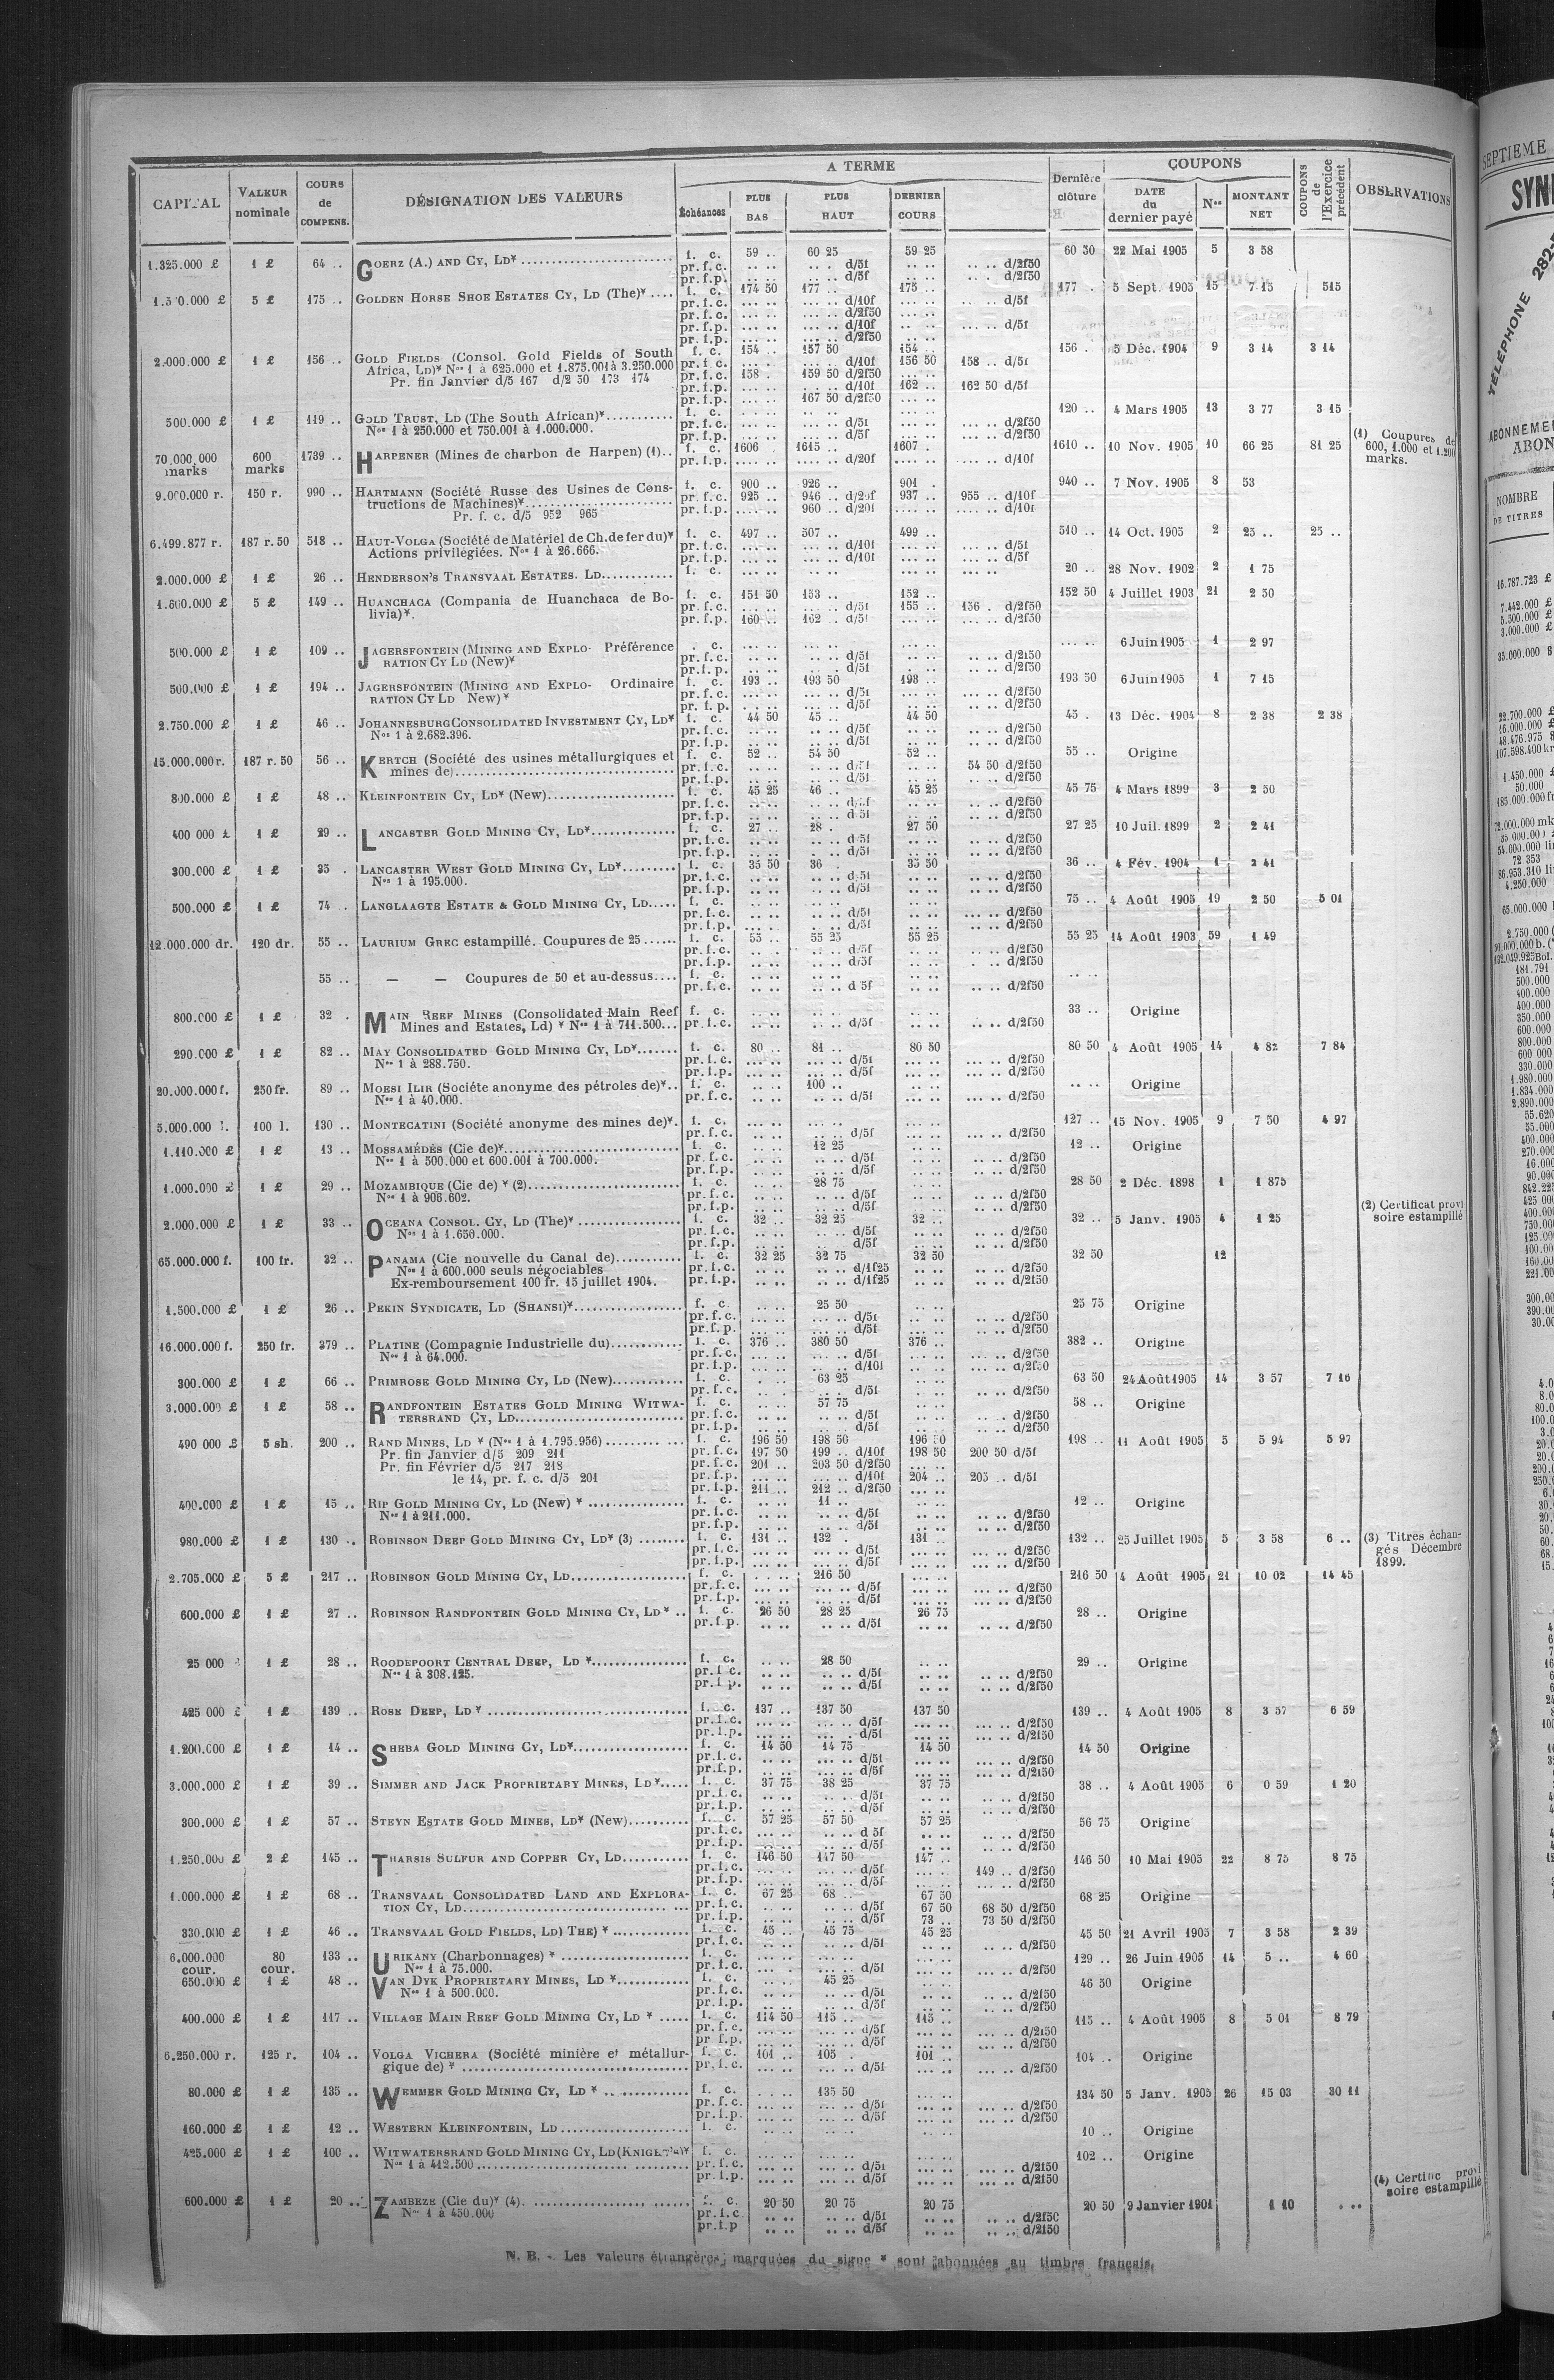 A TERME
COUPONS
CAPITAL | VALEUR nominale | COURS de COMPENS. | DÉSIGNATION DES VALEURS | Échéances | PLUS BAS | PLUS HAUT | DERNIER COURS | Dernière clôture | DATE du dernier payé | Nos | MONTANT NET | COUPONS de l'Exercice précédent | OBSERVATIONS
1.325.000 £ | 1 £ | 64 .. | GOERZ (A.) AND CY, LD* | f. c. | 59 .. | 60 25 | 59 25 | 60 50 | 22 Mai 1905 | 5 | 3 58
pr. f. c. d/5f d/2f50
pr. f. p. d/5f d/2f50
5 £ | 175 .. | GOLDEN HORSE SHOE ESTATES CY, LD (The)* | f. c. | 174 50 | 177 .. | 175 .. | 177 . | 5 Sept. 1905 | 15 | 7 15 | 515
pr. f. c. d/10f d/5f
pr. f. c. d/2f50
pr. f. p. d/10f d/5f
pr. f. p. d/2f50
2.000.000 £ | 1 £ | 156 .. | GOLD FIELDS (Consol. Gold Fields of South | f. c. | 154 .. | 157 50 | 154 .. | 156 .. | 5 Déc. 1904 | 9 | 3 14 | 3 14
Africa, LD)* Nos 1 à 625.000 et 1.875.001 à 3.250.000 | pr. f. c. | d/10f | 156 50 | 158 .. d/5f
Pr. fin Janvier d/5 167 d/2 50 173 174 | pr. f. c. | 158 . | 159 50 d/2f50
pr. f. p. d/10f | 162 .. | 162 50 d/5f
pr. f. p. 167 50 d/2f50
500.000 £ | 1 £ | 119 .. | GOLD TRUST, LD (The South African)* | f. c. | 120 .. | 4 Mars 1905 | 13 | 3 77 | 3 15
Nos 1 à 250.000 et 750.001 à 1.000.000. | pr. f. c. d/5f d/2f50
pr. f. p. d/5f d/2f50
70.000.000 marks | 600 marks | 1739 .. | HARPENER (Mines de charbon de Harpen) (1).. | f. c. | 1606 | 1615 .. | 1607 .. | 1610 .. | 10 Nov. 1905 | 10 | 66 25 | 81 25 | (1) Coupures de 600, 1.000 et 1.200 marks.
pr. f. p. d/20f d/10f
9.000.000 r. | 150 r. | 990 .. | HARTMANN (Société Russe des Usines de Cons- | f. c. | 900 .. | 926 .. | 901 . | 940 .. | 7 Nov. 1905 | 8 | 53
tructions de Machines)* | pr. f. c. | 925 .. | 946 .. d/20f | 937 .. | 955 .. d/10f
Pr. f. c. d/5 952 965 | pr. f. p. | 960 .. d/20f | d/10f
6.499.877 r. | 187 r. 50 | 518 .. | HAUT-VOLGA (Société de Matériel de Ch. de fer du)* | f. c. | 497 .. | 507 .. | 499 .. | 510 .. | 14 Oct. 1905 | 2 | 25 .. | 25 ..
Actions privilégiées. Nos 1 à 26.666. | pr. f. c. d/10f d/5f
pr. f. p. d/10f d/5f
2.000.000 £ | 1 £ | 26 .. | HENDERSON'S TRANSVAAL ESTATES. LD | f. c. | 20 .. | 28 Nov. 1902 | 2 | 1 75
1.600.000 £ | 5 £ | 149 .. | HUANCHACA (Compania de Huanchaca de Bo- | f. c. | 151 50 | 153 .. | 152 .. | 152 50 | 4 Juillet 1903 | 21 | 2 50
livia)*. | pr. f. c. | d/5f | 155 .. | 156 . d/2f50
pr. f. p. | 160 .. | 162 .. d/5f | d/2f50
500.000 £ | 1 £ | 109 .. | JAGERSFONTEIN (MINING AND EXPLO- Préférence | . c. | 6 Juin 1905 | 1 | 2 97
RATION CY LD (New)* | pr. f. c. d/5f d/2f50
pr. f. p. d/5f d/2f50
500.000 £ | 1 £ | 194 .. | JAGERSFONTEIN (MINING AND EXPLO- Ordinaire | f. c. | 193 .. | 193 50 | 193 .. | 193 50 | 6 Juin 1905 | 1 | 7 15
RATION CY LD New)* | pr. f. c. d/5f d/2f50
pr. f. p. d/5f d/2f50
2.750.000 £ | 1 £ | 46 .. | JOHANNESBURG CONSOLIDATED INVESTMENT CY, LD* | f. c. | 44 50 | 45 .. | 44 50 | 45 . | 13 Déc. 1904 | 8 | 2 38 | 2 38
Nos 1 à 2.682.396. | pr. f. c. d/5f d/2f50
pr. f. p. d/5f d/2f50
15.000.000 r. | 187 r. 50 | 56 .. | KERTCH (Société des usines métallurgiques et | f. c. | 52 .. | 54 50 | 52 .. | 55 .. | Origine
mines de) | pr. f. c. | d/5f | 54 50 d/2f50
pr. f. p. d/5f d/2f50
800.000 £ | 1 £ | 48 .. | KLEINFONTEIN CY, LD* (New) | f. c. | 45 25 | 46 .. | 45 25 | 45 75 | 4 Mars 1899 | 3 | 2 50
pr. f. c. d/5f d/2f50
pr. f. p. d 5f d/2f50
400 000 £ | 1 £ | 29 .. | LANCASTER GOLD MINING CY, LD* | f. c. | 27 .. | 28 . | 27 50 | 27 25 | 10 Juil. 1899 | 2 | 2 41
pr. f. c. d/5f d/2f50
pr. f. p. d/5f d/2f50
300.000 £ | 1 £ | 35 . | LANCASTER WEST GOLD MINING CY, LD* | f. c. | 35 50 | 36 . | 35 50 | 36 .. | 4 Fév. 1904 | 1 | 2 41
Nos 1 à 195.000. | pr. f. c. d/5f d/2f50
pr. f. p. d/5f d/2f50
500.000 £ | 1 £ | 74 . | LANGLAAGTE ESTATE & GOLD MINING CY, LD | f. c. | 75 .. | 4 Août 1905 | 19 | 2 50 | 5 01
pr. f. c. d/5f d/2f50
pr. f. p. d/5f d/2f50
12.000.000 dr. | 120 dr. | 55 .. | LAURIUM GREC estampillé. Coupures de 25 | f. c. | 55 .. | 55 25 | 55 25 | 55 25 | 14 Août 1903 | 59 | 1 49
pr. f. c. d/5f d/2f50
pr. f. p. d/5f d/2f50
55 .. | — — Coupures de 50 et au-dessus | f. c.
pr. f. c. d 5f d/2f50
800.000 £ | 1 £ | 32 . | MAIN REEF MINES (Consolidated Main Reef | f. c. | 33 .. | Origine
Mines and Estates, Ld) * Nos 1 à 711.500 | pr. f. c. d/5f d/2f50
290.000 £ | 1 £ | 82 .. | MAY CONSOLIDATED GOLD MINING CY, LD* | f. c. | 80 .. | 81 .. | 80 50 | 80 50 | 4 Août 1905 | 14 | 4 82 | 7 84
Nos 1 à 288.750. | pr. f. c. d/5f d/2f50
pr. f. p. d/5f d/2f50
20.000.000 f. | 250 fr. | 89 .. | MOESI ILIR (Sociéte anonyme des pétroles de)* | f. c. | 100 .. | Origine
Nos 1 à 40.000. | pr. f. c. d/5f d/2f50
5.000.000 l. | 100 l. | 130 .. | MONTECATINI (Société anonyme des mines de)*. | f. c. | 127 .. | 15 Nov. 1905 | 9 | 7 50 | 4 97
pr. f. c. d/5f d/2f50
1.110.000 £ | 1 £ | 13 .. | MOSSAMÉDÈS (Cie de)* | f. c. | 12 25 | 12 .. | Origine
Nos 1 à 500.000 et 600.001 à 700.000. | pr. f. c. d/5f d/2f50
pr. f. p. d/5f d/2f50
1.000.000 £ | 1 £ | 29 .. | MOZAMBIQUE (Cie de) * (2) | f. c. | 28 75 | 28 50 | 2 Déc. 1898 | 1 | 1 875
Nos 1 à 906.602. | pr. f. c. d/5f d/2f50
pr. f. p. d/5f d/2f50 | (2) Certificat provi
2.000.000 £ | 1 £ | 33 .. | OCEANA CONSOL. CY, LD (The)* | f. c. | 32 .. | 32 25 | 32 .. | 32 .. | 5 Janv. 1905 | 4 | 1 25 | soire estampillé
Nos 1 à 1.650.000. | pr. f. c. d/5f d/2f50
pr. f. p. d/5f d/2f50
65.000.000 f. | 100 fr. | 32 .. | PANAMA (Cie nouvelle du Canal de) | f. c. | 32 25 | 32 75 | 32 50 | 32 50 | 12
Nos 1 à 600.000 seuls négociables | pr. f. c. d/1f25 d/2f50
Ex-remboursement 100 fr. 15 juillet 1904. | pr. f. p. d/1f25 d/2f50
1.500.000 £ | 1 £ | 26 .. | PEKIN SYNDICATE, LD (SHANSI)* | f. c. | 25 50 | 25 75 | Origine
pr. f. c. d/5f d/2f50
pr. f. p. d/5f d/2f50
16.000.000 f. | 250 fr. | 379 .. | PLATINE (Compagnie Industrielle du) | f. c. | 376 .. | 380 50 | 376 .. | 382 .. | Origine
Nos 1 à 64.000. | pr. f. c. d/5f d/2f50
pr. f. p. d/10f d/2f50
300.000 £ | 1 £ | 66 .. | PRIMROSE GOLD MINING CY, LD (New) | f. c. | 63 25 | 63 50 | 24 Août 1905 | 14 | 3 57 | 7 16
pr. f. c. d/5f d/2f50
3.000.000 £ | 1 £ | 58 .. | RANDFONTEIN ESTATES GOLD MINING WITWA- | f. c. | 57 75 | 58 .. | Origine
TERSRAND CY, LD | pr. f. c. d/5f d/2f50
pr. f. p. d/5f d/2f50
490 000 £ | 5 sh. | 200 .. | RAND MINES, LD * (Nos 1 à 1.795.956) | f. c. | 196 50 | 198 50 | 196 50 | 198 .. | 11 Août 1905 | 5 | 5 94 | 5 97
Pr. fin Janvier d/5 209 211 | pr. f. c. | 197 50 | 199 .. d/10f | 198 50 | 200 50 d/5f
Pr. fin Février d/5 217 218 | pr. f. c. | 201 .. | 203 50 d/2f50
le 14, pr. f. c. d/5 201 | pr. f. p. | d/10f | 204 .. | 205 .. d/5f
pr. f. p. | 211 .. | 212 .. d/2f50
400.000 £ | 1 £ | 15 .. | RIP GOLD MINING CY, LD (New) * | f. c. | 11 .. | 12 .. | Origine
Nos 1 à 211.000. | pr. f. c. d/5f d/2f50
pr. f. p. d/5f d/2f50
980.000 £ | 1 £ | 130 .. | ROBINSON DEEP GOLD MINING CY, LD* (3) | f. c. | 131 .. | 132 . | 131 .. | 132 .. | 25 Juillet 1905 | 5 | 3 58 | 6 .. | (3) Titres échangés Décembre 1899.
pr. f. c. d/5f d/2f50
pr. f. p. d/5f d/2f50
2.705.000 £ | 5 £ | 217 .. | ROBINSON GOLD MINING CY, LD | f. c. | 216 50 | 216 50 | 4 Août 1905 | 21 | 10 02 | 14 45
pr. f. c. d/5f d/2f50
pr. f. p. d/5f d/2f50
600.000 £ | 1 £ | 27 .. | ROBINSON RANDFONTEIN GOLD MINING CY, LD* .. | f. c. | 26 50 | 28 25 | 26 75 | 28 .. | Origine
pr. f. p. d/5f d/2f50
25 000 | 1 £ | 28 .. | ROODEPOORT CENTRAL DEEP, LD * | f. c. | 28 50 | 29 .. | Origine
Nos 1 à 308.125. | pr. f. c. d/5f d/2f50
pr. f. p. d/5f d/2f50
425 000 £ | 1 £ | 139 .. | ROSE DEEP, LD * | f. c. | 137 .. | 137 50 | 137 50 | 139 .. | 4 Août 1905 | 8 | 3 57 | 6 59
pr. f. c. d/5f d/2f50
pr. f. p. d/5f d/2f50
1.200.000 £ | 1 £ | 14 .. | SHEBA GOLD MINING CY, LD* | f. c. | 14 50 | 14 75 | 14 50 | 14 50 | Origine
pr. f. c. d/5f d/2f50
pr. f. p. d/5f d/2f50
3.000.000 £ | 1 £ | 39 .. | SIMMER AND JACK PROPRIETARY MINES, LD* | f. c. | 37 75 | 38 25 | 37 75 | 38 .. | 4 Août 1905 | 6 | 0 59 | 1 20
pr. f. c. d/5f d/2f50
pr. f. p. d/5f d/2f50
300.000 £ | 1 £ | 57 .. | STEYN ESTATE GOLD MINES, LD* (New) | f. c. | 57 25 | 57 50 | 57 25 | 56 75 | Origine
pr. f. c. d 5f d/2f50
pr. f. p. d/5f d/2f50
1.250.000 £ | 2 £ | 145 .. | THARSIS SULFUR AND COPPER CY, LD | f. c. | 146 50 | 147 50 | 147 .. | 146 50 | 10 Mai 1905 | 22 | 8 75 | 8 75
pr. f. c. d/5f | 149 .. d/2f50
pr. f. p. d/5f d/2f50
1.000.000 £ | 1 £ | 68 .. | TRANSVAAL CONSOLIDATED LAND AND EXPLORA- | f. c. | 67 25 | 68 .. | 67 50 | 68 25 | Origine
TION CY, LD | pr. f. c. | d/5f | 67 50 | 68 50 d/2f50
pr. f. p. | d/5f | 73 .. | 73 50 d/2f50
330.000 £ | 1 £ | 46 .. | TRANSVAAL GOLD FIELDS, LD) THE) * | f. c. | 45 .. | 45 75 | 45 25 | 45 50 | 21 Avril 1905 | 7 | 3 58 | 2 39
pr. f. c. d/5f d/2f50
6.000.000 cour. | 80 cour. | 133 .. | URIKANY (Charbonnages) * | f. c. | 129 .. | 26 Juin 1905 | 14 | 5 .. | 4 60
Nos 1 à 75.000. | pr. f. c. d/5f d/2f50
650.000 £ | 1 £ | 48 .. | VAN DYK PROPRIETARY MINES, LD * | f. c. | 45 25 | 46 50 | Origine
Nos 1 à 500.000. | pr. f. c. d/5f d/2f50
pr. f. p. d/5f d/2f50
400.000 £ | 1 £ | 117 .. | VILLAGE MAIN REEF GOLD MINING CY, LD * | f. c. | 114 50 | 115 .. | 115 .. | 115 .. | 4 Août 1905 | 8 | 5 01 | 8 79
pr. f. c. d/5f d/2f50
pr f.p. d/5f d/2f50
6.250.000 r. | 125 r. | 104 .. | VOLGA VICHERA (Société minière et métallur- | f. c. | 101 .. | 105 . | 101 .. | 104 .. | Origine
gique de) * | pr. f. c. d/5f d/2f50
80.000 £ | 1 £ | 135 .. | WEMMER GOLD MINING CY, LD * | f. c. | 135 50 | 134 50 | 5 Janv. 1905 | 26 | 15 03 | 30 11
pr. f. c. d/5f d/2f50
pr. f. p. d/5f d/2f50
160.000 £ | 1 £ | 12 .. | WESTERN KLEINFONTEIN, LD | f. c. | 10 .. | Origine
425.000 £ | 1 £ | 100 .. | WITWATERSRAND GOLD MINING CY, LD | f. c. | 102 .. | Origine
Nos 1 à 412.500 | pr. f. c. d/5f d/2f50
pr. f. p. d/5f d/2f50 | (4) Certific provi soire estampillé
600.000 £ | 1 £ | 20 .. | ZAMBEZE (Cie du)* (4). | f. c. | 20 50 | 20 75 | 20 75 | 20 50 | 9 Janvier 1901 | 1 10
Nos 1 à 450.000 | pr. f. c. d/5f d/2f50
pr. f. p d/5f d/2f50
N. B. - Les valeurs étrangères, marquées du signe * sont abonnées au timbre français.
SEPTIEME
SYN
TÉLÉPHONE 282-
ABONNEME
ABON
NOMBRE
DE TITRES
16.787.723 £
7.442.000 £
5.500.000 £
3.000.000 £
35.000.000 $
22.700.000 £
16.000.000 £
48.476.975 $
107.598.400 kr
1.450.000 £
50.000
185.000.000 fr